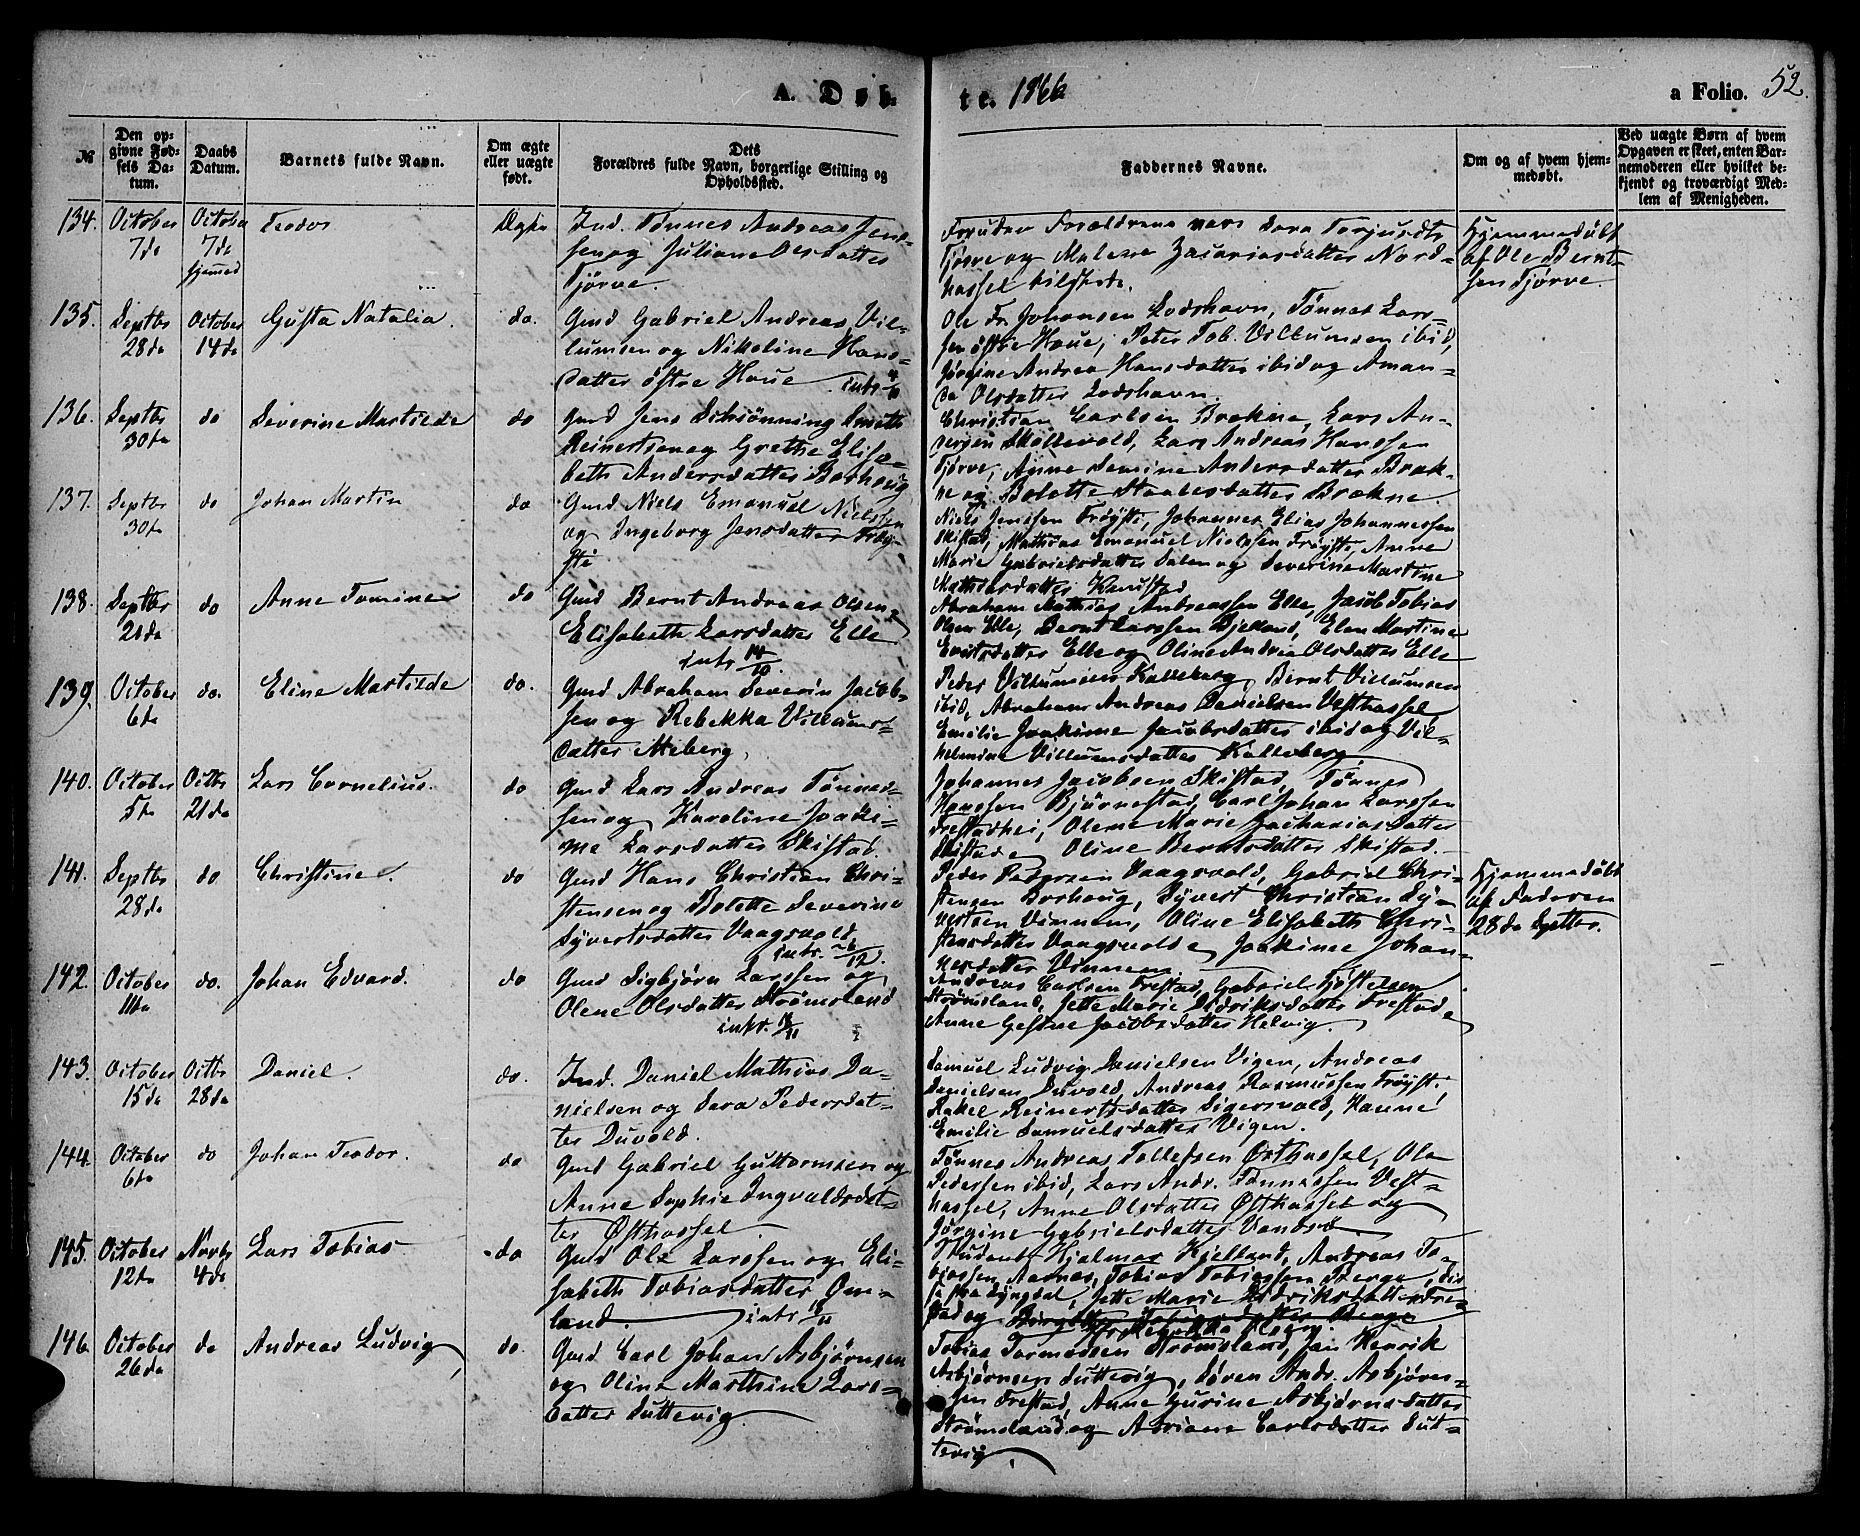 A. Døb-
te. 1866
a Folio. 52.
№
Den opgivne Fødsels Datum.
Daabs Datum.
Barnets fulde Navn.
Om ægte eller uægte født.
Dets Forældres fulde Navn, borgerlige Stilling og Opholdssted.
Faddernes Navne.
Om og af hvem hjemmedøbt.
Ved uægte Børn af hvem Opgaven er skeet, enten Barnemoderen eller hvilket bekjendt og troværdigt Medlem af Menigheden.
134. October 7de
October 7de hjemmed
Teodor
Ægte
Ind. Tønnes Andreas Jens-
sen og Juliane Olsdatter
Tjørve.
Foruden Forældrene vare Sara Torjusdtr
Tjørve og Malene Zacariasdatter Nord-
hassel tilstede.
Hjemmedøbt
af Ole Bernt-
sen Tjørve.
135. Septbr 28de
October 14de
Gusta Natalia.
do.
Gmd Gabriel Andreas Vil-
lumsen og Nikoline Hans-
datter østre Haue. intr
Ole Fr. Johansen Lodshavn, Tønnes Lars-
sen østre Haue, Peter Tob. Villumsen ibid,
Jørgine Andrea Hansdatter ibid og Aman-
da Olsdatter Lodshavn.
136. Septbr 30te
do
Severine Martilde
do
Gmd Jens Schiønning Smith
Reinertsen og Grethe Elisa-
beth Andersdatter Borhaug
Christian Carlsen Brækne, Lars An-
dersen Skollevold, Lars Andreas Hanssen
Tjørve, Anne Semine Andersdatter Bræk-
ne og Bolette Staalesdatter Brækne.
137. Septbr 30te
do
Johan Martin
do
Gmd Niels Emanuel Nielssen
og Ingeborg Jensdatter Frøy-
sti
Niels Jenssen Frøysti, Johannes Elias Johannessen
Skistad, Mathias Emanuel Nielssen Frøysti, Anne
Marie Gabrielsdatter Salen og Severine Martine
Mathiasdatter Knustad
138. Septbr 21de
do
Anne Tomine
do
Gmd Bernt Andreas Olsen,
Elisabeth Larsdatter Elle
intr 14/10
Abraham Mathias Andreassen Elle, Jacob Tobias
Olsen Elle, Bernt Larssen Bjelland, Elen Martine
Evertsdatter Elle og Oline Andrea Olsdatter Elle
139. October 6te
do.
Eline Martilde
do.
Gmd Abraham Severin Jacob-
sen og Rebekka Villums-
datter
Peder Villumsen Kalleberg, Bernt Villumsen
ibid, Abraham Andreas Danielsen Vesthassel
Emilie Joakime Jacobsdatter ibid og Vil-
helmine Villumsdatter Kalleberg
140. October 5te
Octbr 21de
Lars Cornelius.
do
Gmd Lars Andreas Tønnes-
sen og Karoline Joaki-
me Larsdatter Skistad.
Johannes Jacobsen Skistad, Tønnes
Hanssen Bjørnestad, Carl Johan Larssen
Frestadhei, Olene Marie Zachariasdatter
Skistad og Oline Berntsdatter Skistad.
141. Septbr 28de
do
Christine.
do
Gmd Hans Christian Chri-
stensen og Bolette Severine
Syvertsdatter Vaagsvold
intr.
Peder Pedersen Vaagsvold, Gabriel Chri-
stensen Borhaug, Syvert Christian Sy-
vertsen Vinnem, Oline Elisabeth Chri-
stensdatter Vaagsvold og Joakime Johan-
nesdatter Vinnem
Hjemmedøbt
af Faderen
28de Septbr.
142. October 11te
do.
Johan Edvard.
do
Gmd Sigbjørn Larssen og
Olene Olsdatter Strømsland
intr.
Andreas Carlsen Frestad, Gabriel
Strømsland, Jette Marie Didriksdatter Frestad,
Anne Gesine Jacobsdatter Helvig.
143. October 15de
Octbr 28de
Daniel.
do.
Ind. Daniel Mathias Da-
nielsen og Sara Pedersdat-
ter Duvold.
Samuel Ludvig Danielsen Vigen, Andreas
Danielsen Duvold, Andreas Rasmussen Frøyst.
Rakel Reinertsdatter Sigersvold, Hanne
Emilie Samuelsdatter Vigen.
144. October 6te
do
Johan Teodor.
do
Gmd Gabriel Guttormsen og
Anne Sophie Ingvaldsdat-
ter Østhassel
Tønnes Andreas Tollefsen Østhassel, Ole
Pedersen ibid, Lars Andr. Tønnessen Vest-
hassel, Anne Olsdatter Østhassel og
Jørgine Gabrielsdatter Vandsø
145. October 12te
Novbr 4de
Lars Tobias
do
Gmd Ole Larssen og Eli-
sabeth Tobiasdatter Øm-
land. intr
Student Hjalmar Kjelland, Andreas To-
biassen Aarnes, Tobias Tobiassen Berge,
Lyngdal, Jette Marie Didriksdatter Fre-
stad og
146. October 26de
do
Andreas Ludvig
do.
Gmd Carl Johan Asbjørnsen
og Oline Marthine Lars-
datter Luttevig
Tobias Tormodsen Strømsland, Jan Henrik
Asbjørnsen Luttevig, Søren Andr. Asbjørn-
sen Frestad, Anne Gurine Asbjørnsdatter
Strømsland og Adriane Carlsdatter Lut-
tevig